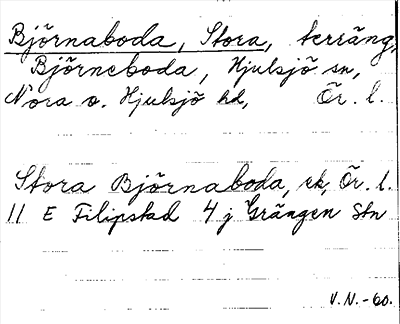 Björnaboda, Stora, terräng,
Björneboda, Hjulsjö sn,
Nora o. Hjulsjö hd, Ör. l.
Stora Björnaboda, ek, Ör. l.
11 E Filipstad 4 j Grängen Stn
V.N.-60.